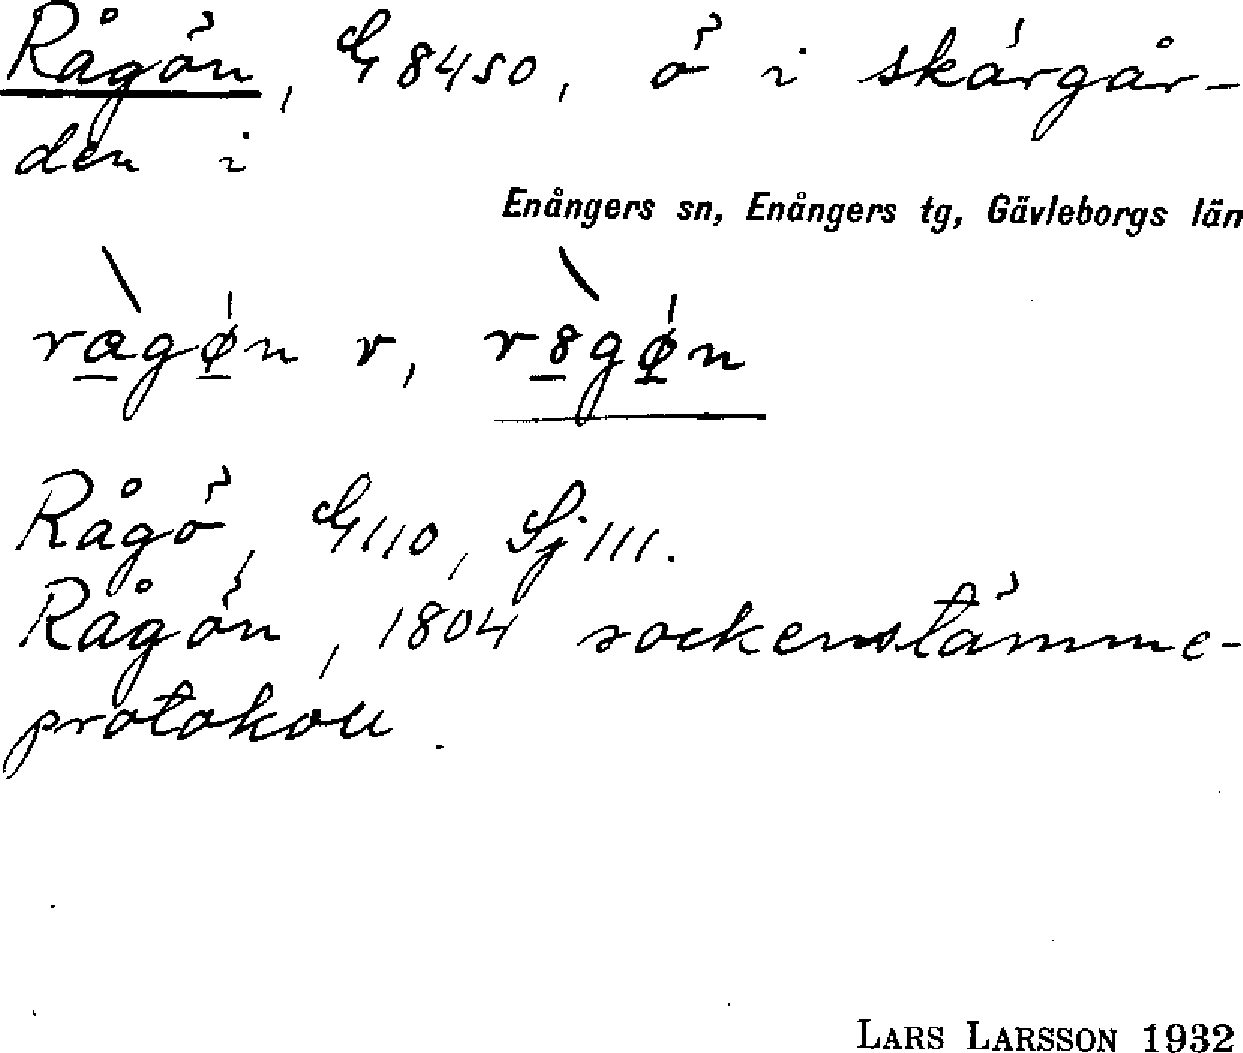 Rågön, G 8450, ö i skärgår-
den i
Enångers sn, Enångers tg, Gävleborgs län
rågø̀n r, r8gø̀n
Rågö, G 110, Sj 111.
Rågön, 1804 sockenstämme-
protokoll.
LARS LARSSON 1932